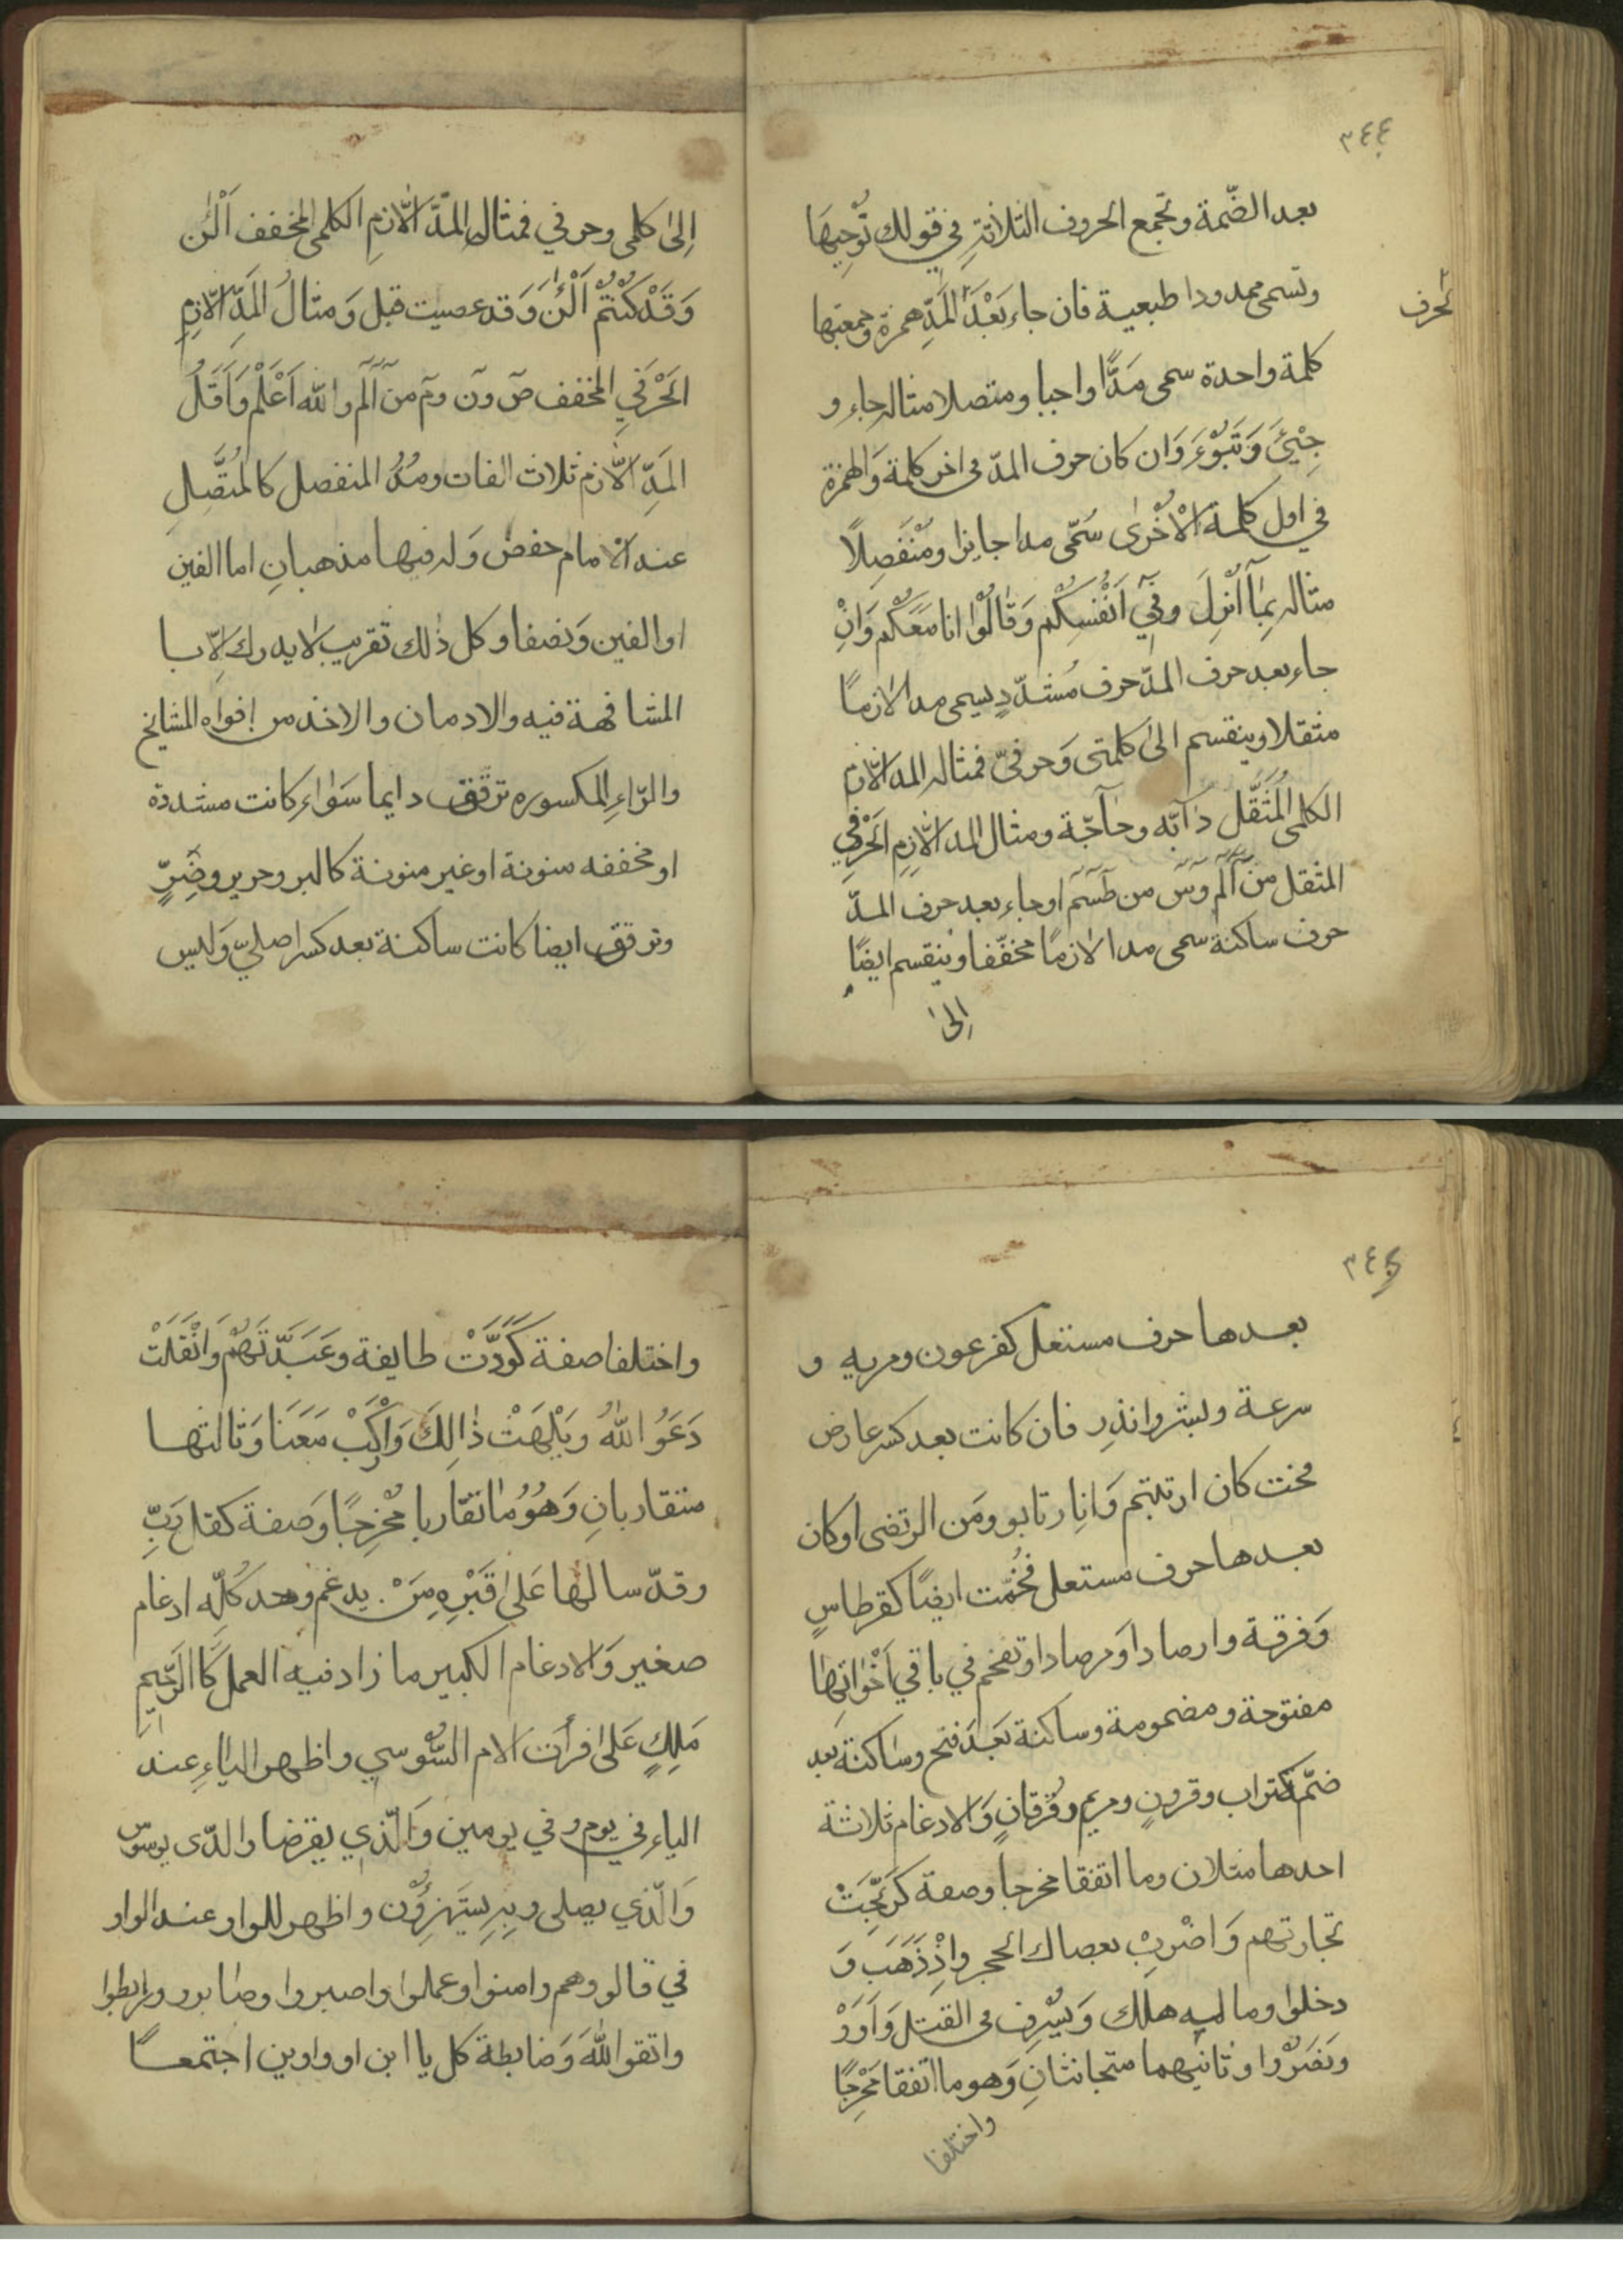 ٣٤٤
بعد الضّمة وتجمع الحروف الثلاثةِ في قولك نُوْحِيهَا
وتسمى ممدودا طبعية فان جاء بَعْدَ المَدِّ همزة وجمعتها
الحرف
كلمة واحدة سمى مَدًّا واجبا ومتصلا مثاله جاء و
جِيْئَ وَتَبُوْءَ وَان كان حرف المدّ فى اخر كلمة وَالهمزة
في اول كلمة الْاُخْرٰى سُمّى مدا جايزا ومُنْفَصِلًا
مثاله بِمَآ اُنْزِلَ وفِيٓ اَنْفُسِكُم وَقَالُوْا انا مَعَكُم وَانْ
جاء بعد حرف المدّ حرف مُشدّدٍ يسمى مدا لازمًا
مثقلا وينقسم الى كلمتى وَحرفيّ فمثاله المد الّازم
الكلمى المُثَقَّل دٰآبّه وحٰآجّة ومثال المد الّازِمِ الحَرْفِي
المثقل مِنْ الٓمٓ وسٓ من طٓسٓمٓ او جاء بعد حرف المدّ
حرف ساكنة سمى مدا لازمًا مخفّفا وينقسم ايضًا
اِلىٰ
اِلىٰ كلمى وحرفي فمثال المَدَّ الّازمِ الكلمى المخفف اَلْـٰٔنَ
وَقَدْ كُنْتُمْ اَلْـٰٔنَ وَقد عصيت قبل وَمثالُ المَدِّ الّازِمِ
الحَرْفِي المخفف صٓ ونٓ ومٓ من الٓمٓ والله اَعْلَم وَاَقَلُّ
المَدِّ الّازم ثلاث الفات ومُدُّ المنفصل كالمُتَّصِلِ
عند الامام حفص وَله فيها مذهبانِ اما الفين
او الفين وَنصفا وكل ذٰلك تقريب لا يدرك اِلّا با
المشافهة فيه والادمان والاخذ من افواه المشايخ
والرّاءِ المكسوره ترقق دايما سَوَاء كانت مشددة
او مخففه منونة او غير منونة كالبر وحرير وضِرٍّ
وترقق ايضا كانت ساكنة بعد كسر اصليّ وَليس
٣٤٥
بعدها حرف مستعل كفرعون ومريه و
سرعة وبشر وانذِر فان كانت بعد كسر عارض
مخت كان ارتبتم وَانِ ارتابو ومَن الرتضى او كان
بعدها حرف مستعل فُخّمت ايضًا كقرطاسٍ
وَفرقة وارصادا وَمرصادا وتفخم في باقي اَخْوَاتِهَا
مفتوحة ومضمومة وساكنة بَعْدَ فتح وساكنة بعد
ضمّ كتراب وقرونٍ ومريم وفُرقانٍ وَالادغام ثلاثة
احدها مثلان وما اتفقا مخرجا وصفة كرَبِحَتْ
تجارتهم وَاضْرِبْ بعصاك الحجر وَاِذْ ذَهَبَ وَ
دخلوا وماليه هلك وَيُسْرِف فى القتل وَاَوَوْ
وَنَصَرُوا وثانيهما متجانثانِ وَهو ما اتفقا مَخْرِجًا
واختلفا
واختلفا صفة كَوَدَّتْ طايفة وعَبَدتَّهُمْ وَاَثْقَلَتْ
دَعَوُ اللّٰهَ وَيَلْهَثْ ذَالِكَ وَارْكَبْ مَعَنَا وَثالثها
متقاربانِ وَهُوُ مٰا تقاربا مُخْرِجًا وَصفة كقل رَبِّ
وقدّ سالها عَلى قَبْرِهِ مِنْ. يدغم وهد كُلّه ادغام
صغير وَالادغام الكبير ما زاد فيه العمل كَا الرَّحِيمِ
مَلِكِ عَلىٰ اقرأت الام السُّوسي واظهر الياءِ عند
الياء في يوم و في يومين وَالَّذِي يقرضا والذّى يوسوس
وَالّذي يصلى وبِرِيستَهْزِؤُن واظهر للواو عند الواو
في قالو وهم وامنوا وعملوا واصبروا وصابرو ورابطوا
واتقوا اللّٰهَ وَضابطة كل يا ابن او واوين اجتمعا